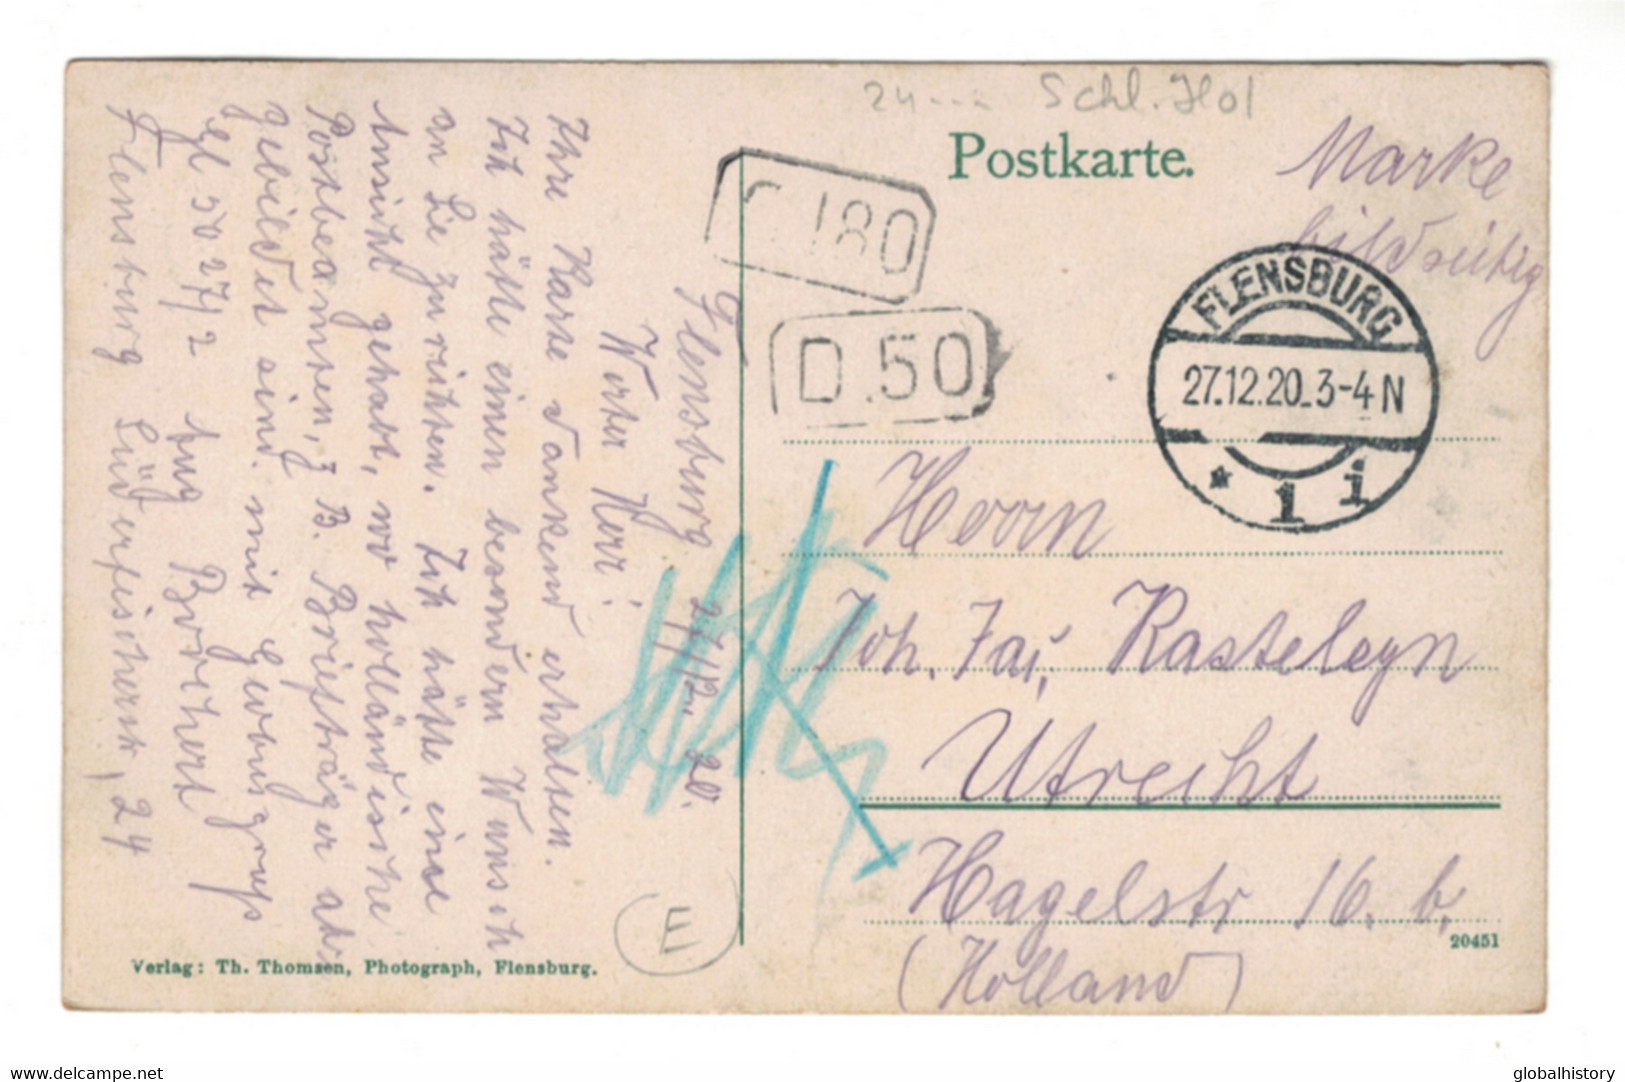 24 ... Schl. Hol
Postkarte.
Marke
bildseitig
180
D.50
FLENSBURG
27.12.20.3-4N
* 1 i
Flensburg 27/12. 20.
Werter Herr!
Ihre Karte dankend erhalten.
Ich hätte einen besondern Wunsch
an Sie zu richten. Ich hätte eine
Ansicht gehabt, wo holländische
Postbeamten, z B. Briefträger
gebildet sind. mit
Borchert
Flensburg Süderfischerst, 24
Herrn
Joh. Kasteleyn
Utrecht
Hagelstr 16. b.
(Holland)
20451
E
Verlag: Th. Thomsen, Photograph, Flensburg.
delcampe.net
globalhistory